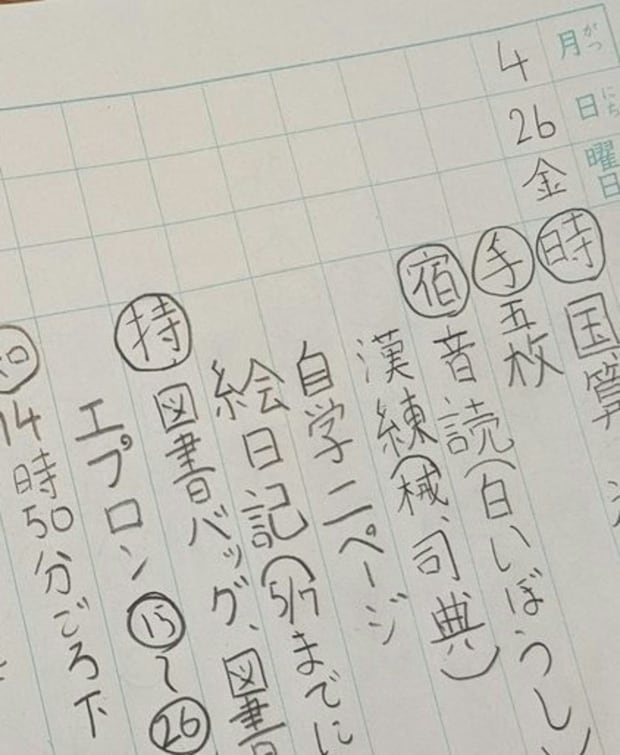 月 日 曜日
がつ にち
4 26 金
時 国、算
手 五枚
宿 音読(白いぼうし
漢練(械、司、典)
自学二ページ
絵日記(5/7までに
持 図書バッグ、図書
エプロン⑮〜㉖
14時50分ごろ下